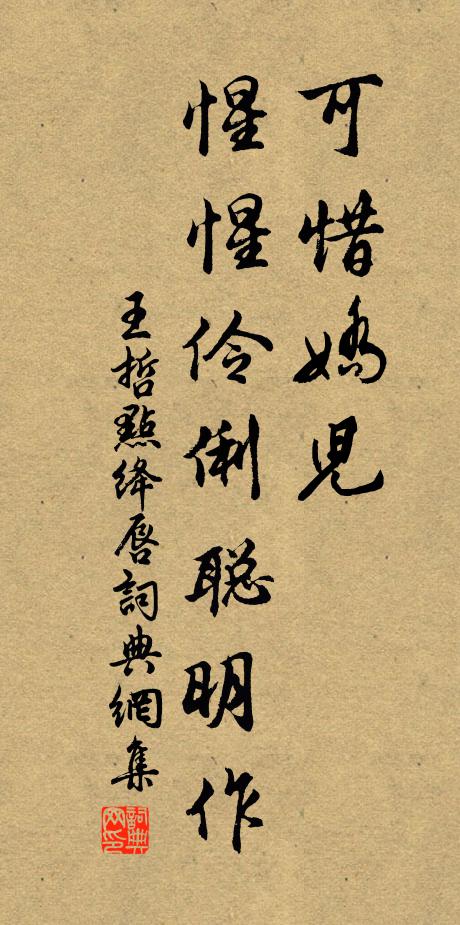 可惜嬌兒
惺惺伶俐聰明作
王哲點絳唇詞典網集
詞典網印